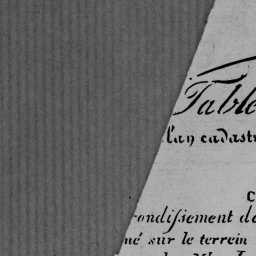 Table
l'an cadast
C
rondissement de
né sur le terrein